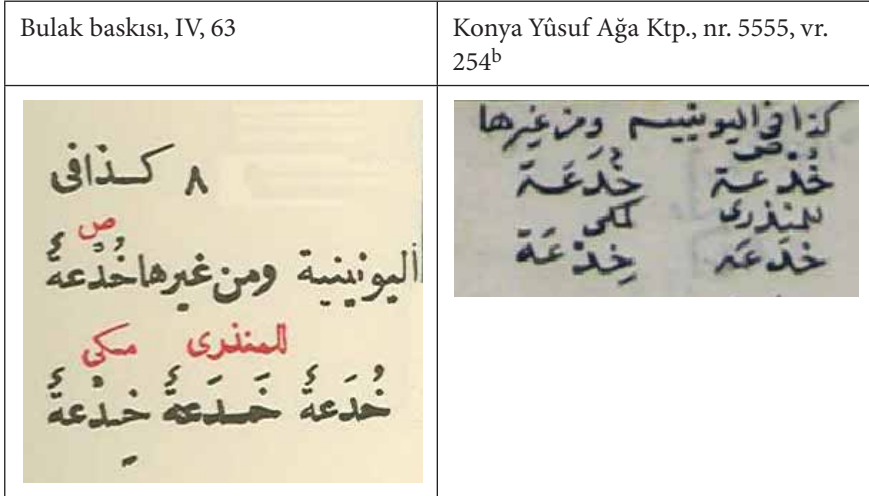 Bulak baskısı, IV, 63
Konya Yûsuf Ağa Ktp., nr. 5555, vr. 254b
٨ كذا فى
ص
اليونينية ومن غيرها خُدْعةٌ
للمنذرى مكى
خُدَعةٌ خَدَعةٌ خِدْعةٌ
كذا في اليونينيه ومن غيرها
ص
خُدْعة خُدَعَة
للمنذرى مكى
خَدَعَه خِدْعَة